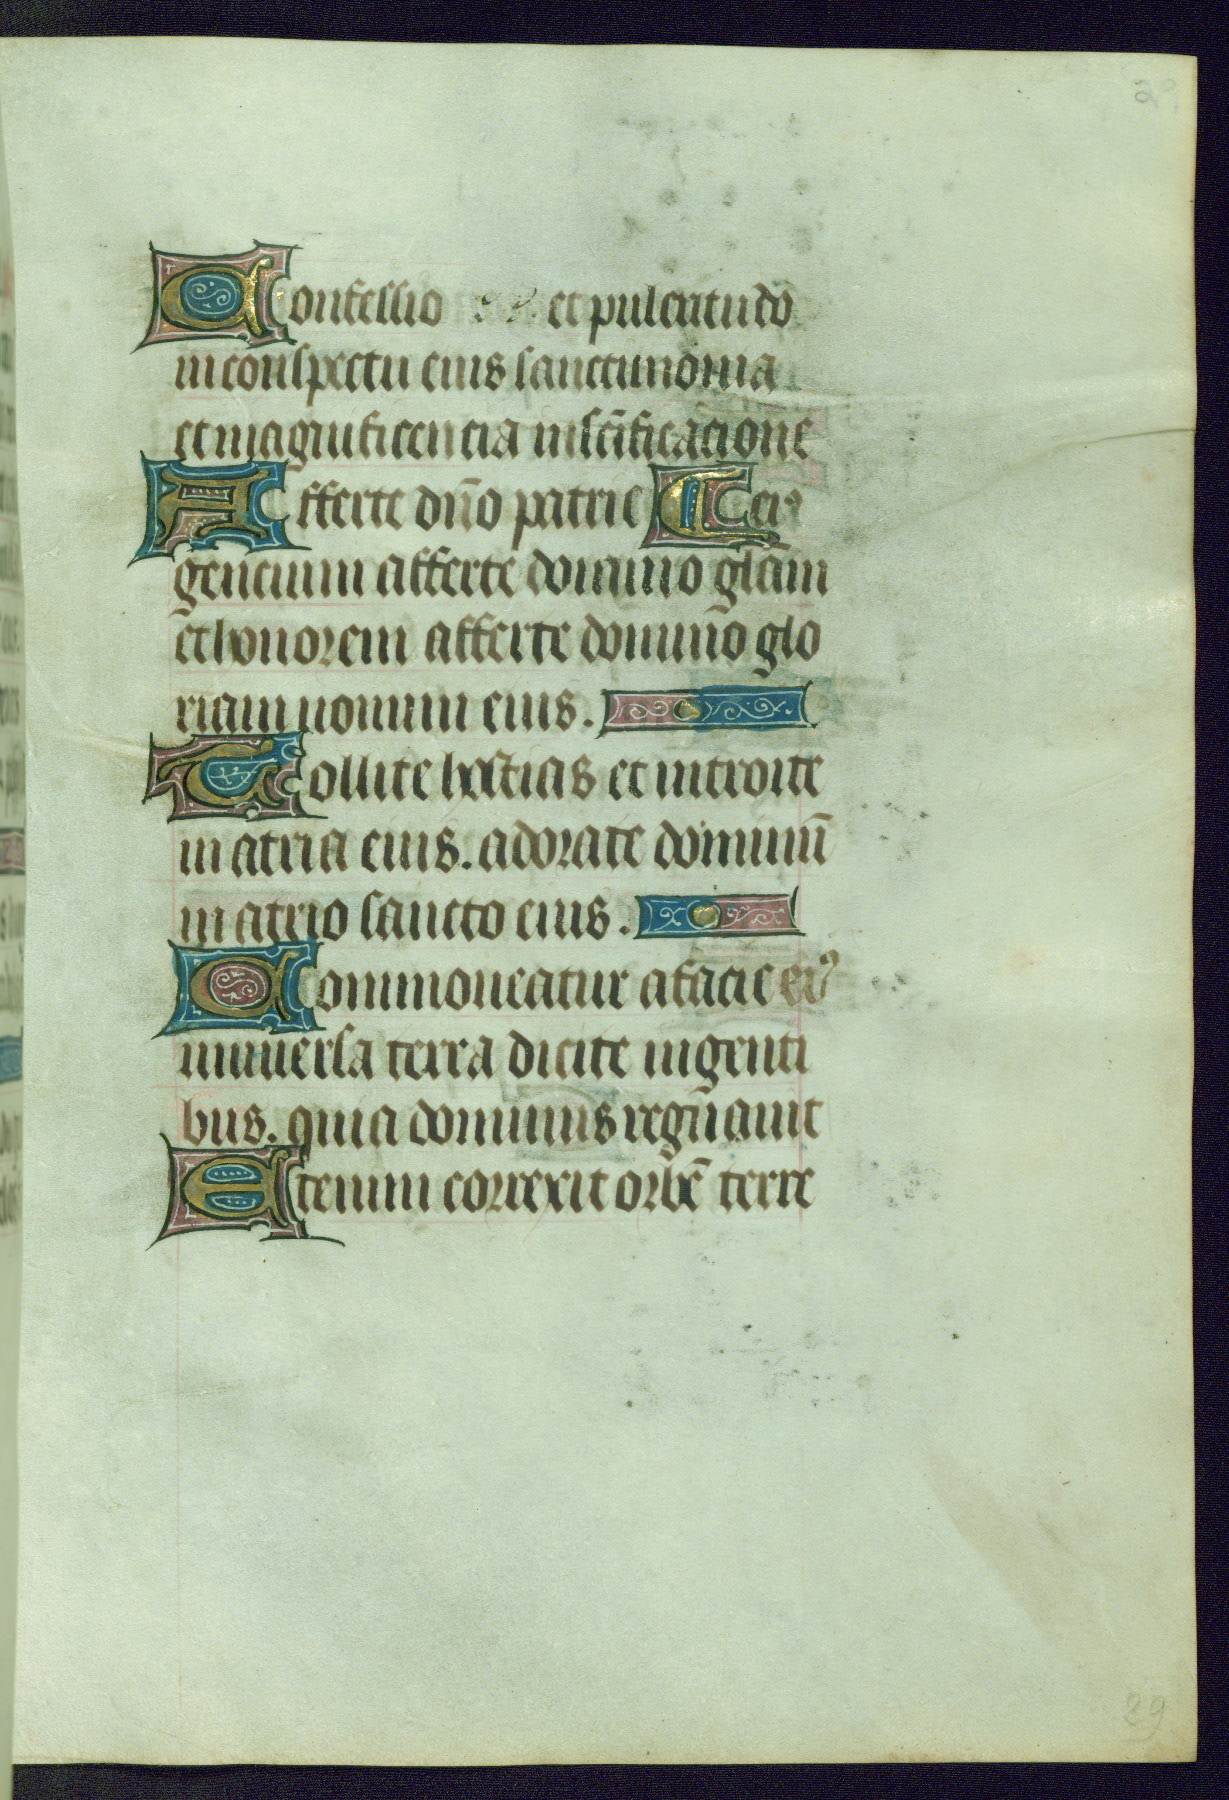 29
Confessio et pulcritudo
in conspectu eius sanctimonia
et magnificencia in scīficacione
Afferte dño patrie
gencium afferte domino glām
et honorem afferte domino glo
riam nomini eius.
Tollite hostias et introite
in atria eius. adorate dominū
in atrio sancto eius.
Commoueatur a facie eiꝰ
uniuersa terra dicite in genti
bus. quia dominus regnauit
Etenim correxit orbē terre
29